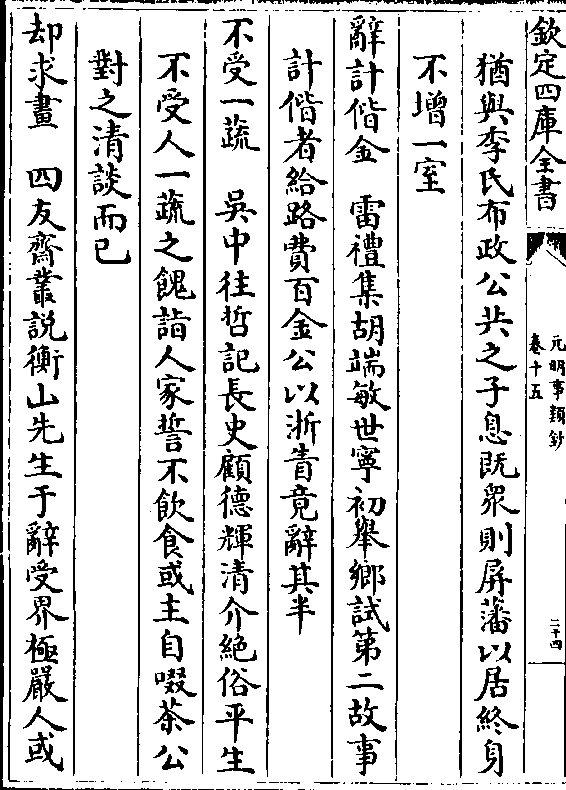 欽定四庫全書
元明事類鈔
卷十五
二十四
猶與李氏布政公共之子息既衆則屏藩以居終身
不增一室
辭計偕金　雷禮集胡端敏世寧初舉鄉試第二故事
計偕者給路費百金公以浙眚竟辭其半
不受一蔬　吳中往哲記長史顧德輝清介絶俗平生
不受人一蔬之餽詣人家誓不飲食或主自啜茶公
對之清談而已
却求畫　四友齋叢説衡山先生于辭受界極嚴人或